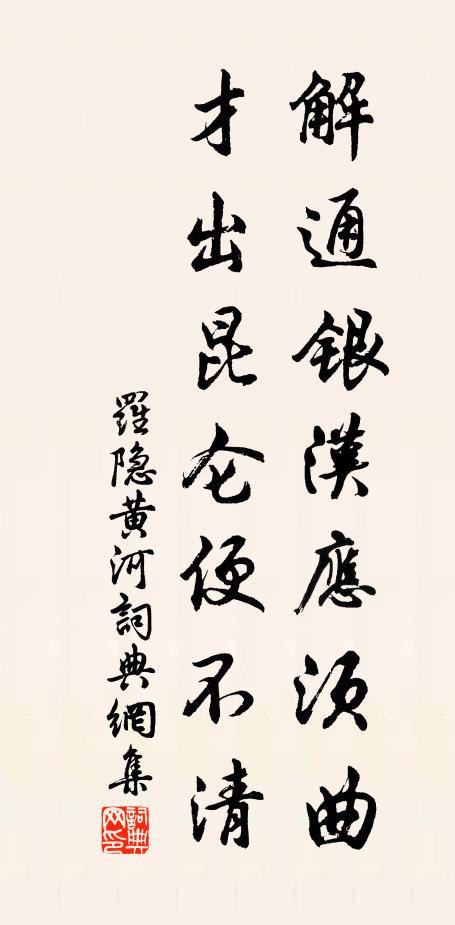 解通銀漢應須曲
才出昆仑便不清
羅隐黄河詞典網集
詞典网印